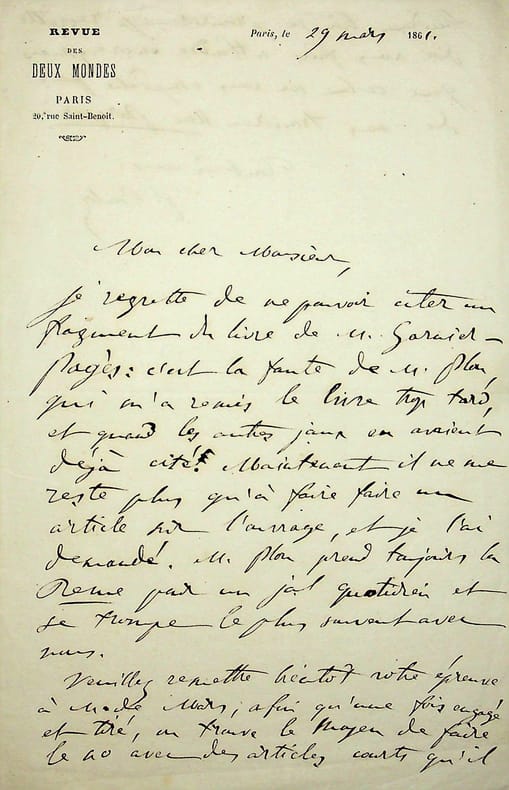 REVUE
DES
DEUX MONDES
PARIS
20, rue Saint-Benoit.
Paris, le 29 mars 1861.
Mon cher Monsieur,
je regrette de ne pouvoir citer un
fragment du livre de M. Garnier-
Pagès: c'est la faute de M. Plon,
qui m'a remis le livre trop tard,
et quand les autres jaux en avaient
déjà cité. Maintenant il ne me
reste plus qu'à faire faire un
article sur l'ouvrage, et je l'ai
demandé. M. Plon prend toujours la
Revue pour un jal quotidien et
se trompe le plus souvent avec
nous.
Veuillez remettre bientôt votre épreuve
à M. de Mars, afin qu'une fois
et tiré, on trouve le moyen de faire
le no avec des articles courts qu'il